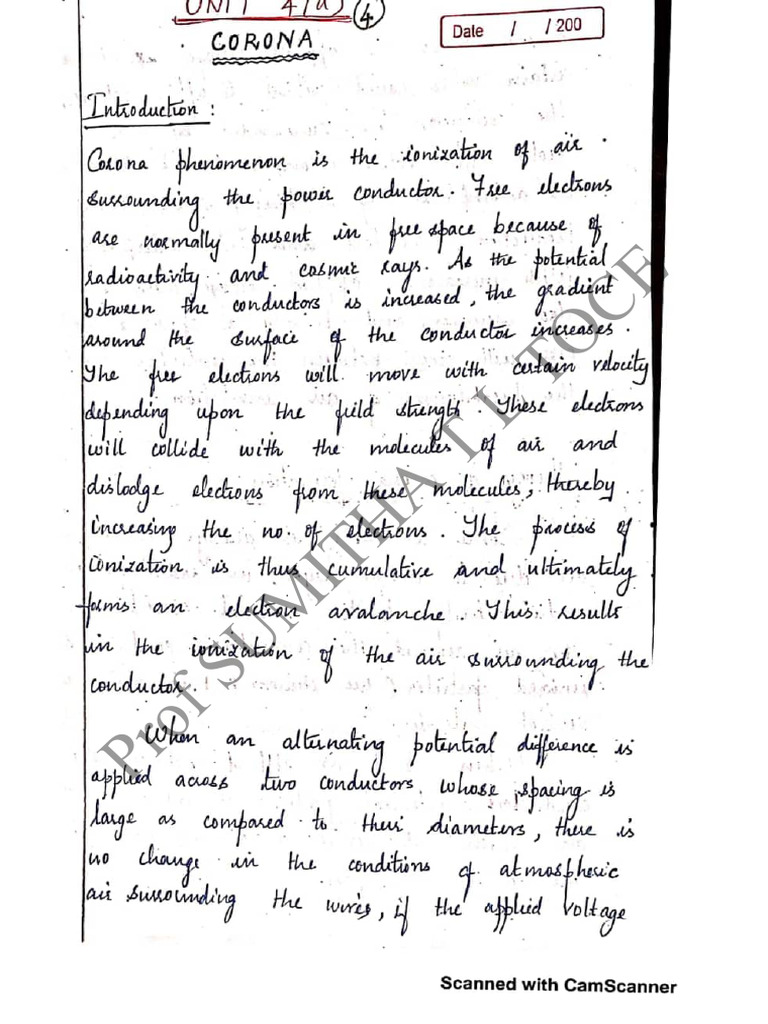 UNIT 4(a) 4
Date / / 200
CORONA
Introduction :
Corona phenomenon is the ionization of air
surrounding the power conductor. Free electrons
are normally present in free space because of
radioactivity and cosmic rays. As the potential
between the conductors is increased, the gradient
around the surface of the conductor increases.
The free elections will move with certain velocity
depending upon the field strength. These electrons
will collide with the molecules of air and
dislodge electrons from these molecules, thereby
increasing the no. of electrons. The process of
ionization is thus cumulative and ultimately
forms an election avalanche. This results
in the ionization of the air surrounding the
conductor.
When an alternating potential difference is
applied across two conductors whose spacing is
large as compared to their diameters, there is
no change in the conditions of atmospheric
air surrounding the wires, if the applied voltage
Prof SUMITHA T L TOCE
Scanned with CamScanner